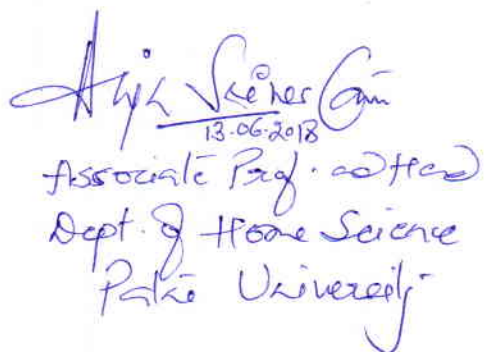 13.06.2018
Associate Prof. and Head
Dept. of Home Science
University